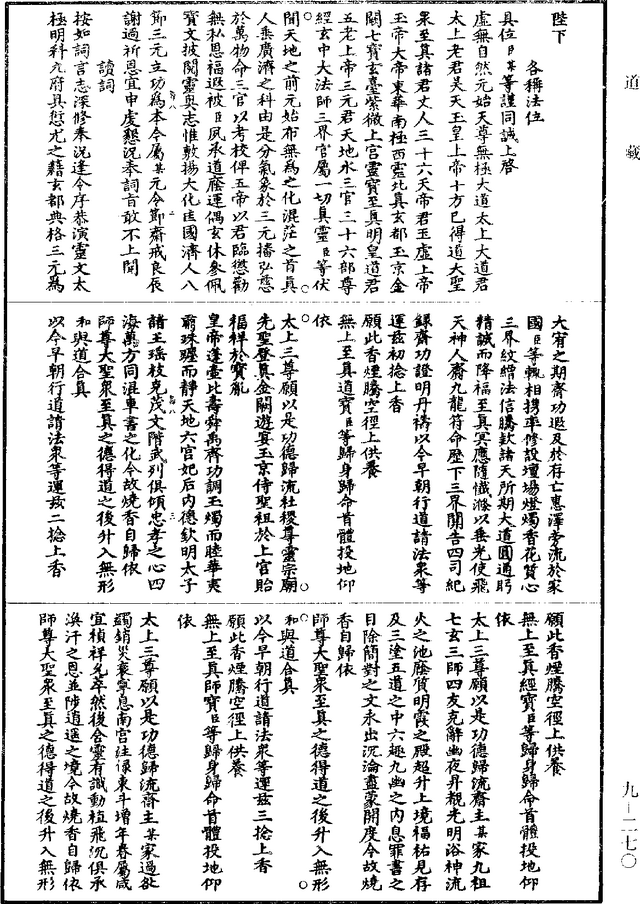 道藏
陛下
各稱法位
具位臣某等謹同誠上啓
虛無自然元始天尊無極大道太上大道君
太上老君昊天玉皇上帝十方已得道大聖
眾至真諸君丈人三十六天帝君玉虛上帝
玉帝大帝東華南極西靈北真玄都玉京金
闕七寶玄臺紫微上宮靈寶至真明皇道君
五老上帝三元君天地水三官三十六部尊
經玄中大法師三界官屬一切真靈臣等伏
聞天地之前元始布無為之化混茫之首真
人垂廣濟之科由是分氣象於三元播弘慈
於萬物命三官以考校俾五帝以君臨懲勸
無私恩福遐被臣夙承道廕運偶玄休參佩
寶文披閱靈奧志惟敷揚大化匡國濟人八
節三元立功為本今屬某元令節齋戒良辰
謝過祈恩宜申虔懇況奉詞旨敢不上聞
讀詞
按如詞言志深修奉況逢令序恭演靈文太
極明科九府具愆尤之籍玄都典格三元為
大宥之期齋功遐及於存亡惠澤帝流於家
國臣等輒相携率修設壇場燈燭香花質心
三界紋繒法信騰欵諸天所期大道圓通眄
精誠而降福至真冥應隨懺滌以垂光使飛
天神人齋九龍符命歷下三界開告四司紀
錄齋功證明丹禱以今早朝行道請法眾等
運茲初捻上香
願此香煙騰空徑上供養
無上至真道寶臣等歸身歸命首體投地仰
依
太上三尊願以是功德歸流社稷尊靈宗廟
先聖登真金闕遊宴玉京侍聖祖於上宮貽
福祥於寶胤
皇帝蓬臺比壽舜禹齊功調玉燭而睦華夷
翦珠躔而靜天地六宮妃后內德欽明太子
諸王瑶枝克茂文階武列俱傾忠孝之心四
海萬方同混車書之化今故燒香自歸依
師尊大聖眾至真之德得道之後升入無形
和與道合真
以今早朝行道請法眾等運茲二捻上香
願此香煙騰空徑上供養
無上至真經寶臣等歸身歸命首體投地仰
依
太上三尊願以是功德歸流齋主某家九祖
七玄三師四友克辭幽夜昇覩光明浴神流
火之池廕質明霞之殿超升上境福祐見存
及三塗五道之中六趣九幽之內息罪書之
目除簡對之文永出沉淪盡蒙開度今故燒
香自歸依
師尊大聖眾至真之德得道之後升入無形
和與道合真
以今早朝行道請法眾等運茲三捻上香
願此香煙騰空徑上供養
無上至真師寶臣等歸身歸命首體投地仰
依
太上三尊願以是功德歸流齋主某家過愆
蠲銷災衰寧息南宮注祿東斗增年眷屬咸
宜禎祥允萃然後合靈有識動植飛沉俱承
渙汗之恩並陟逍遥之境今故燒香自歸依
師尊大聖眾至真之德得道之後升入無形
九－二七〇